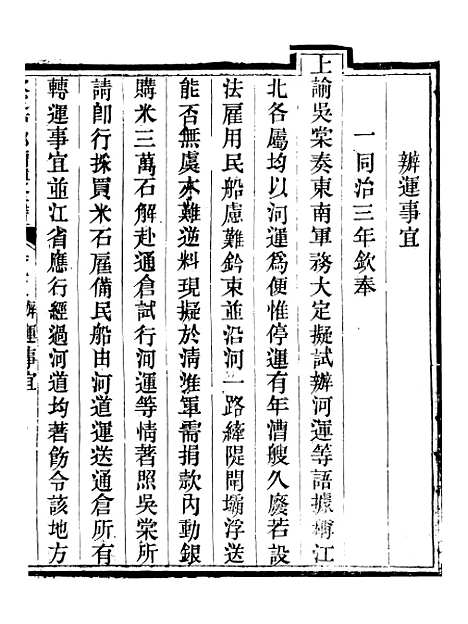 辦運事宜
一同治三年欽奉
上諭吳棠奏東南軍務大定擬試辦河運等語據稱江
北各屬均以河運為便惟停運有年漕艘久廢若設
法雇用民船慮難鈐束並沿河一路緯隄閘壩浮送
能否無虞亦難逆料現擬於淸淮軍需捐款內動銀
購米三萬石解赴通倉試行河運等情著照吳棠所
請卽行採買米石雇備民船由河道運送通倉所有
轉運事宜並江省應行經過河道均著飭令該地方
辦運事宜